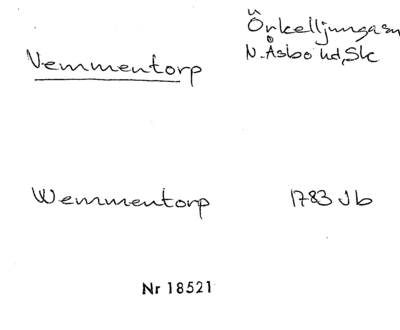 Vemmentorp
Örkelljunga sn
N. Åsbo hd, Sk
Wemmentorp 1783 Jb
Nr 18521